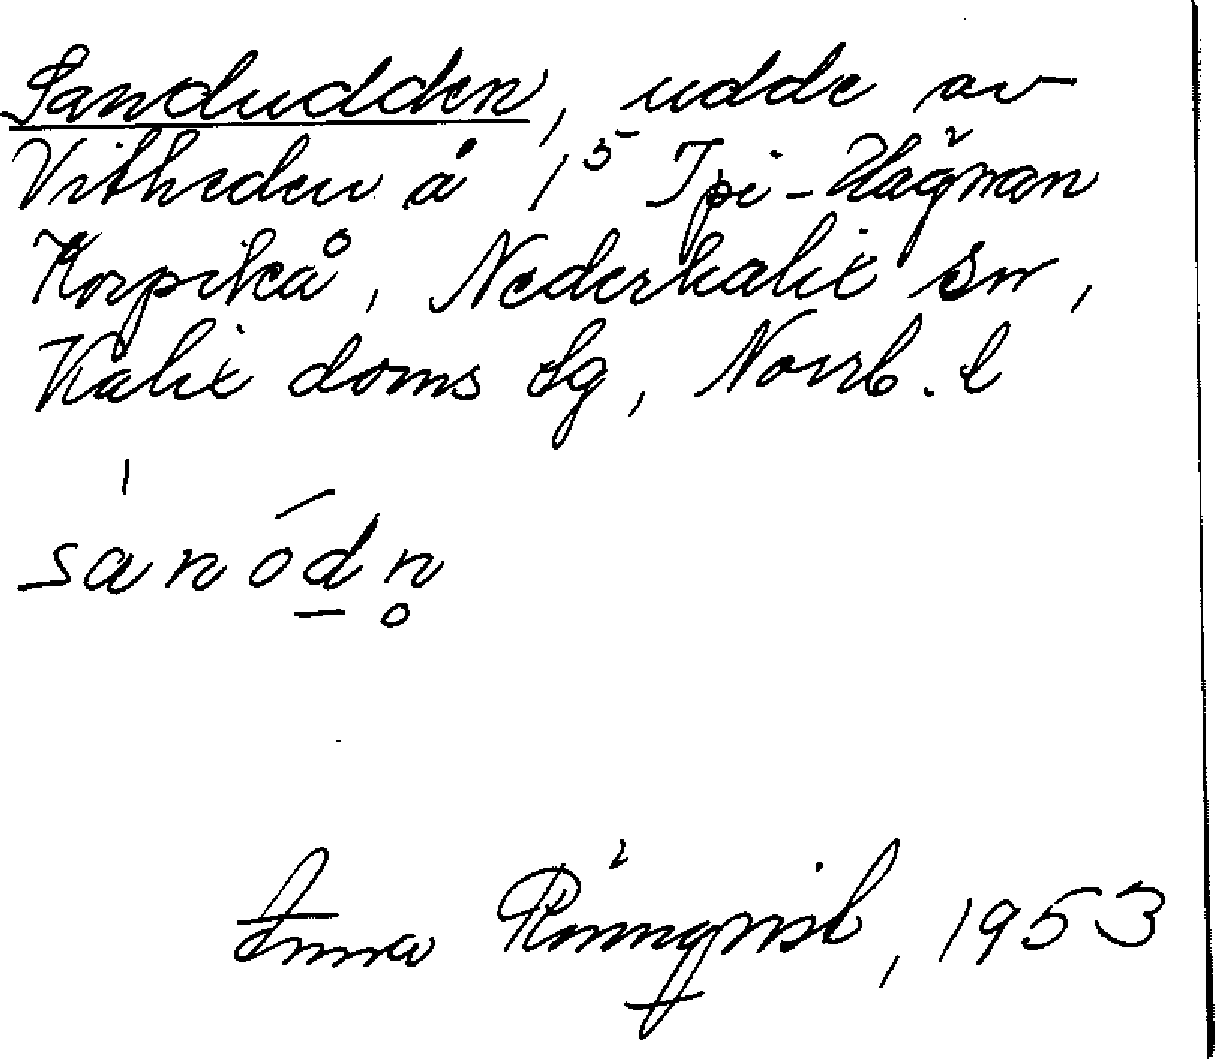 Sandudden, udde av
Vitheden å 1⁵ Ipi-Hägnan
Korpikå, Nederkalix sn,
Kalix doms lg, Norrb. l
sánód̲n̥
Anna Rönnqvist, 1953